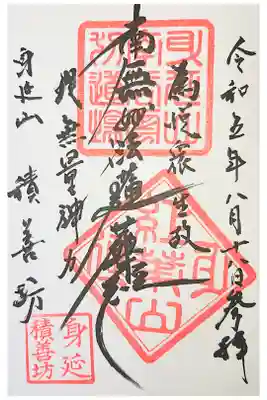 令和五年八月十八日参拝
為悦衆生故
南無妙法蓮華経
現無量神力
身延山 積善坊
身延
積善坊